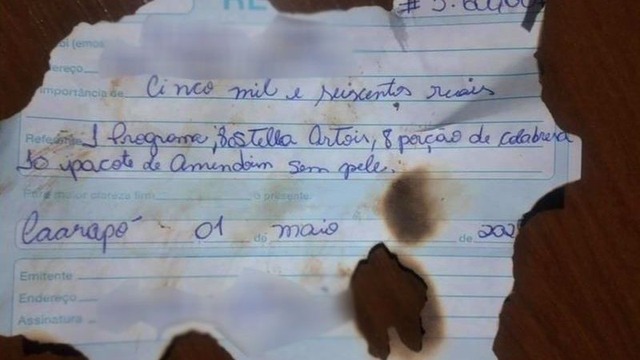 RE
# 5.600,00
ereço
importância de Cinco mil e seiscentos reais
Referente 1 Programa, 8 stella Artois, 8 porção de calabresa
10 pacote de Amendoim sem pele.
Para maior clareza firm o presente.
Caarapó 01 de maio de 202
Emitente
Endereço
Assinatura